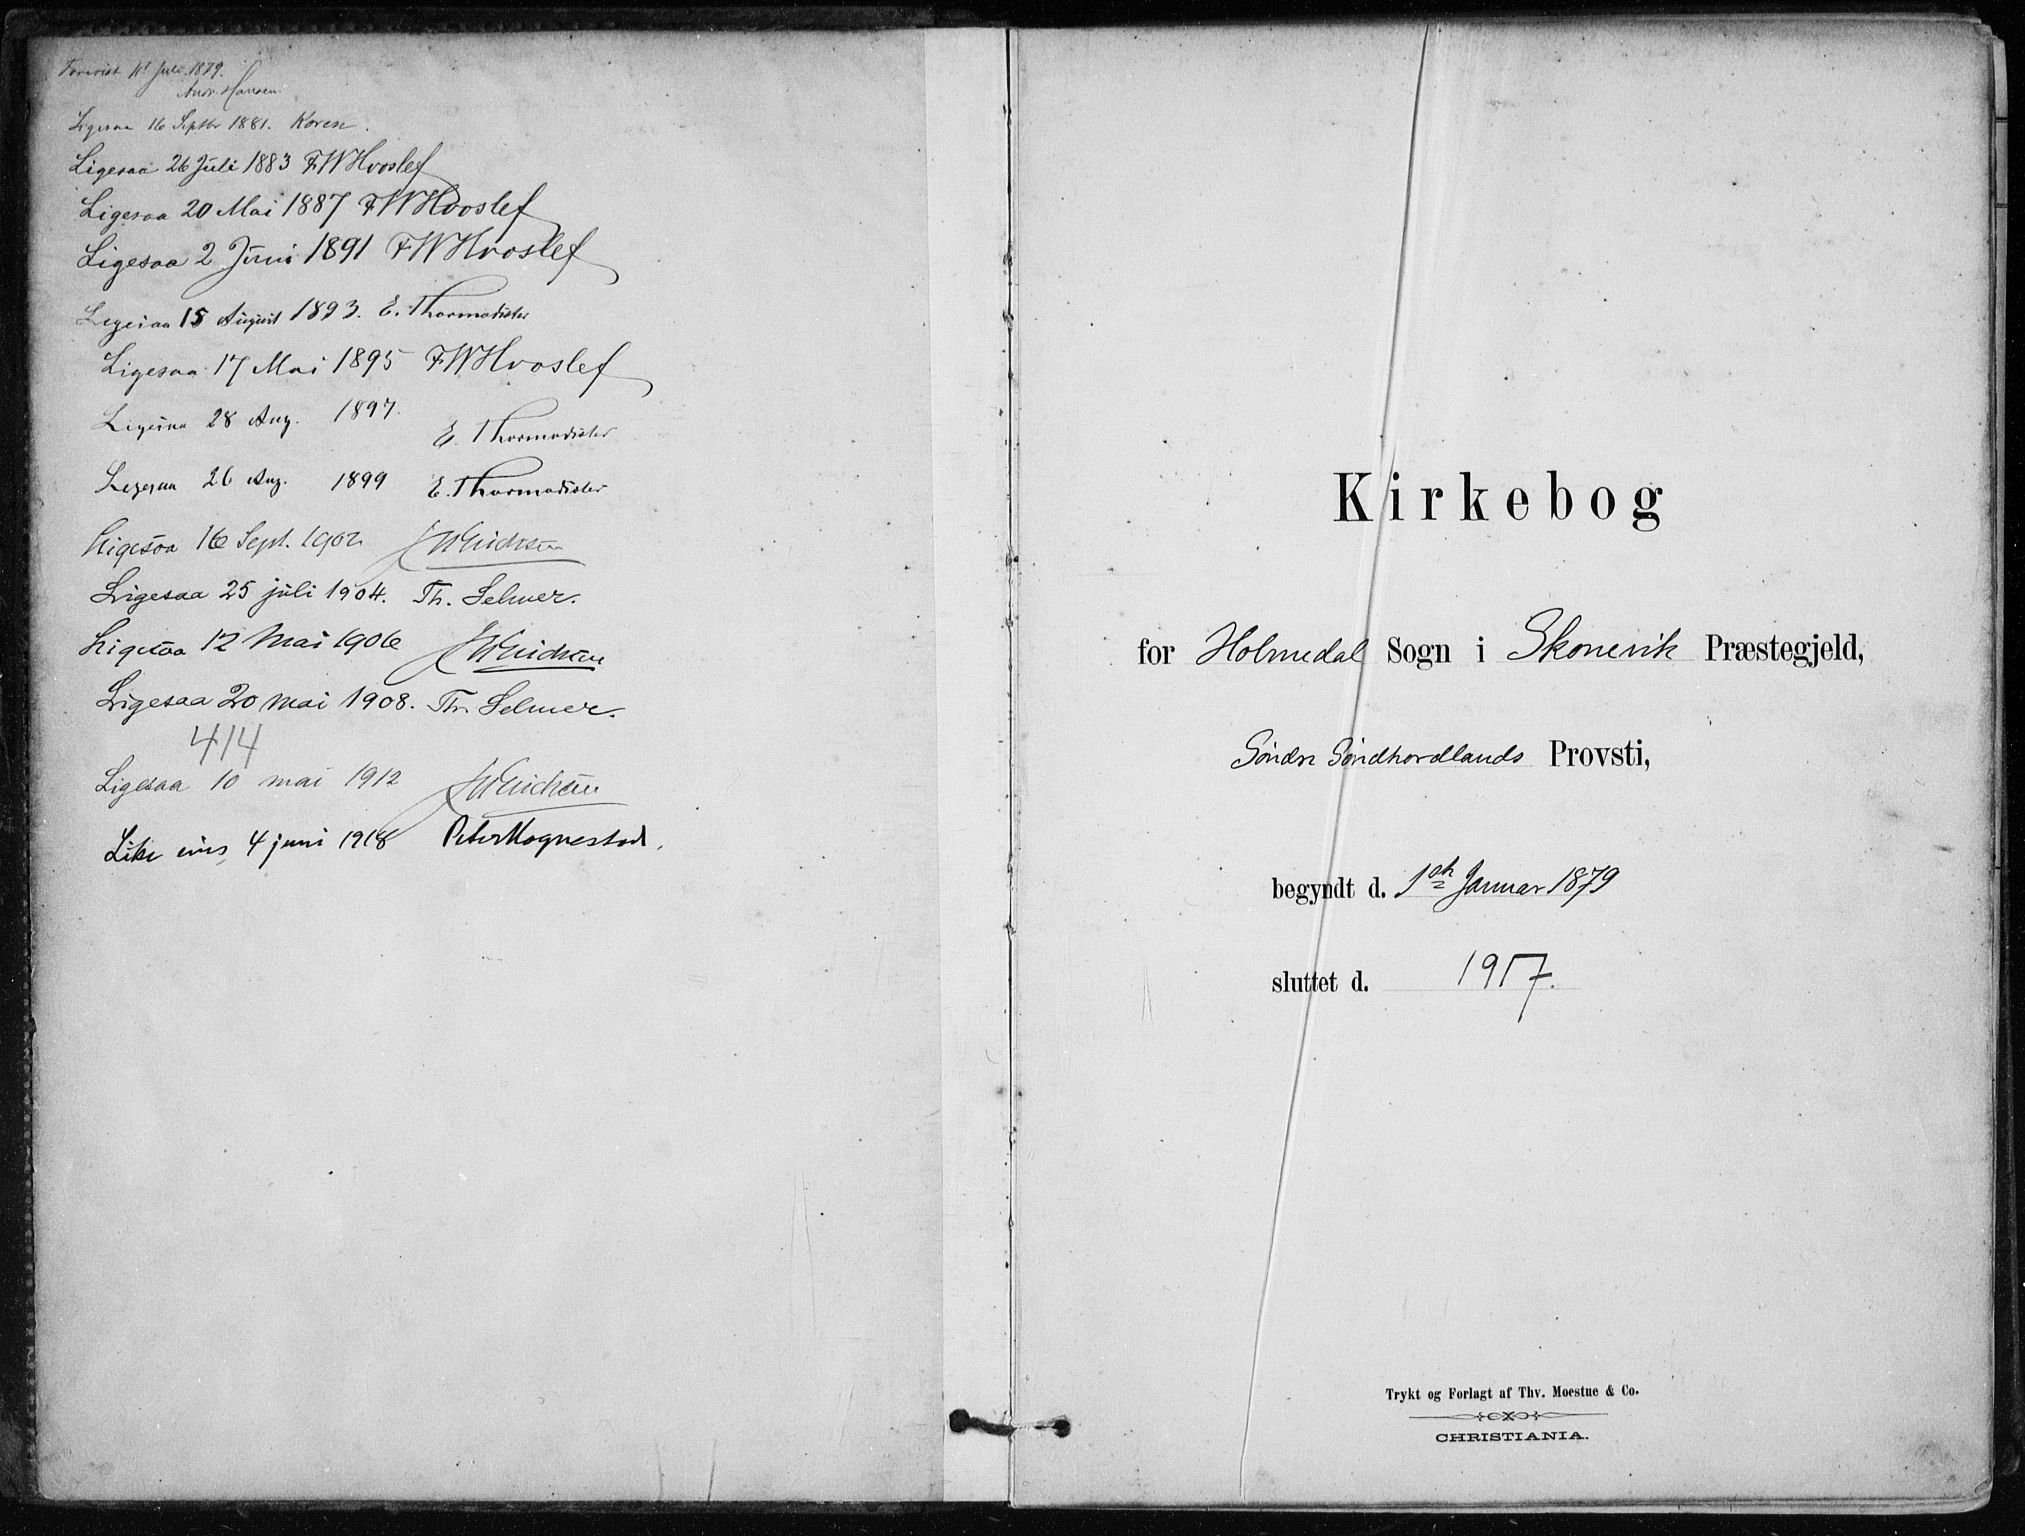 Forevist 11t Juli 1879.
Andr. Hansen
Ligesaa 16 Septbr 1881. Koren.
Ligesaa 26 Juli 1883 FWHvoslef
Ligesaa 20 Mai 1887 FWHvoslef
Ligesaa 2 Juni 1891 FWHvoslef
Ligesaa 15 August 1893. E. Thormodsæter
Ligesaa 17 Mai 1895 FWHvoslef
Ligesaa 28 Aug. 1897.
E. Thormodsæter
Ligesaa 26 Aug. 1899 E. Thormodsæter
Ligesaa 16 Sept. 1902
Ligesaa 25 juli 1904. Th. Selmer.
Ligesaa 12 Mai 1906
Ligesaa 20 mai 1908. Th. Selmer.
414
Ligesaa 10 mai 1912
Like eins 4 juni 1918 Peter Hognestad.
Kirkebog
for Holmedal Sogn i Skonevik Præstegjeld,
Söndre Söndhordlands Provsti,
begyndt d. 1ste Januar 1879
sluttet d. 1917.
Trykt og Forlagt af Thv. Moestue & Co.
CHRISTIANIA.